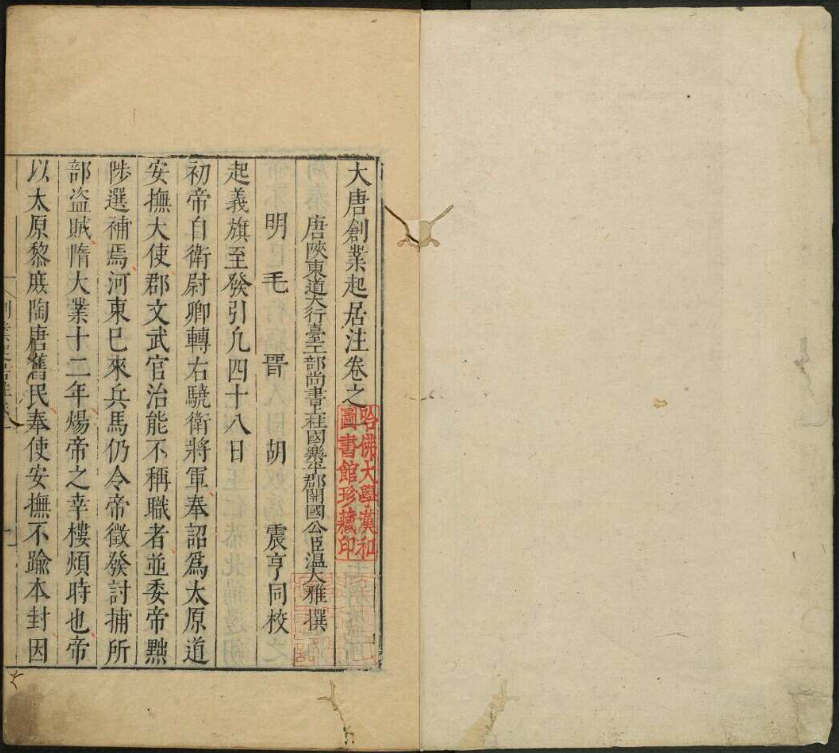 大唐創業起居注卷之
唐陝東道大行臺工部尚書上柱國樂平郡開國公臣溫大雅撰
明毛晉胡震亨同校
起義旗至發引凢四十八日
初帝自衛尉卿轉右驍衛將軍奉詔爲太原道
安撫大使郡文武官治能不稱職者並委帝黜
陟選補焉河東已來兵馬仍令帝徵發討捕所
部盜賊隋大業十二年煬帝之幸樓煩時也帝
以太原黎庶陶唐舊民奉使安撫不踰本封因
哈佛大學漢和
圖書館珍藏印